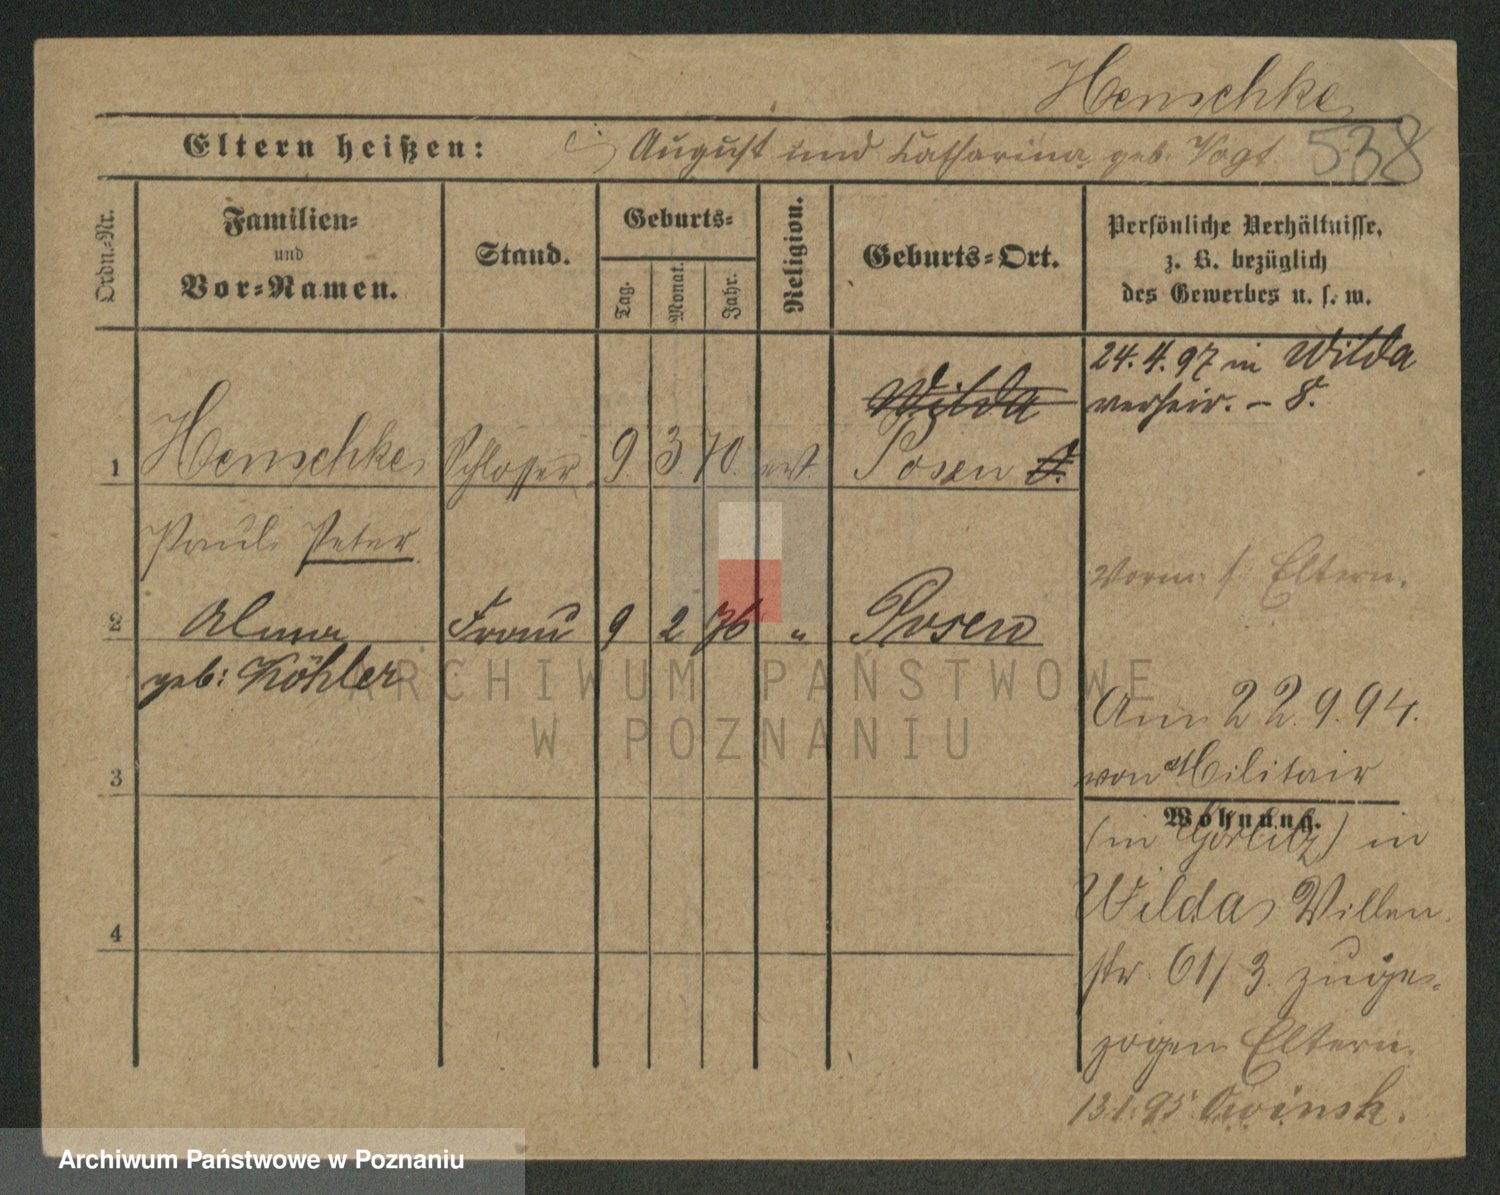 Henschke
538
Eltern heißen: August und Katharina geb. Vogt
Ordn.-Nr.
Familien-
und
Vor-Namen.
Stand.
Geburts-
Tag.
Monat.
Jahr.
Religion.
Geburts-Ort.
Persönliche Verhältnisse,
z. B. bezüglich
des Gewerbes u. s. w.
24.4.97 in Wilda
verheir. – S.
Wilda
1 Henschke Schlosser 9. 3. 70. evt. Posen
Paul Peter
Vorm. s. Eltern.
2 Alma Frau 9 2 76 " Posen
geb: Köhler
Am 22.9.94.
von Militair
3
Wohnung.
(in Görlitz) in
Wilda Villen
4
str. 61/3. zuge-
zogen Eltern.
13.1.95. Owinsk.
ARCHIWUM PAŃSTWOWE
W POZNANIU
Archiwum Państwowe w Poznaniu